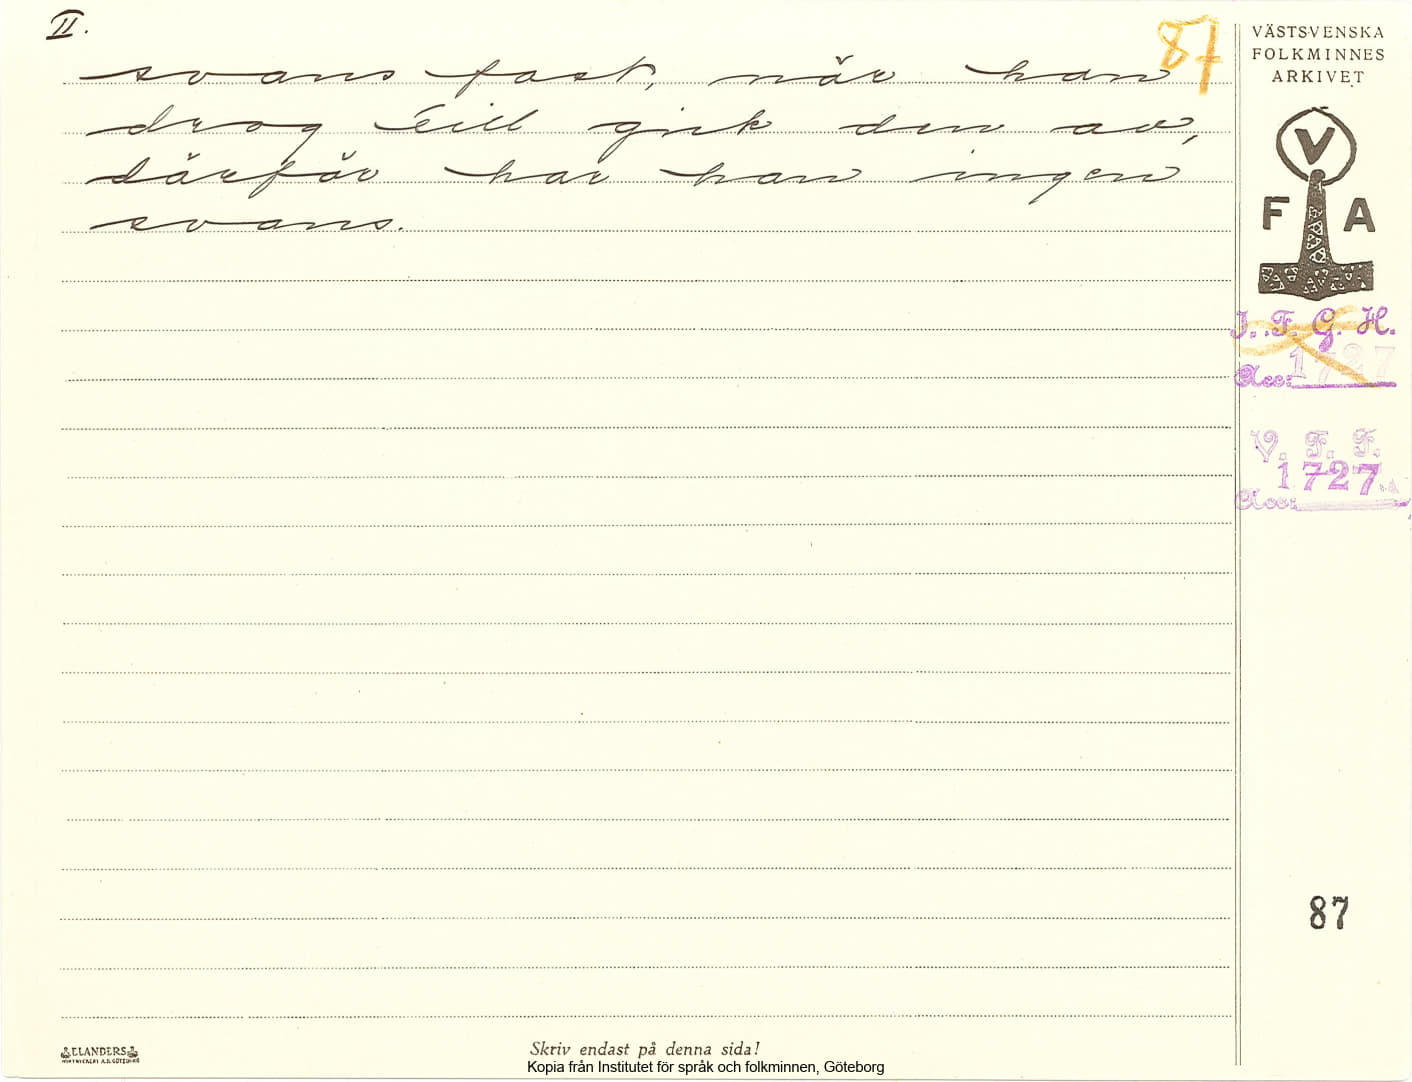 II.
87
svans fast, när han
drog till gick den av,
därför har han ingen
svans.
VÄSTSVENSKA
FOLKMINNES
ARKIVET
V
F A
I. F. G. H.
Acc: 1727
V. F. F.
Acc: 1727
87
ELANDERS
Skriv endast på denna sida!
Kopia från Institutet för språk och folkminnen, Göteborg